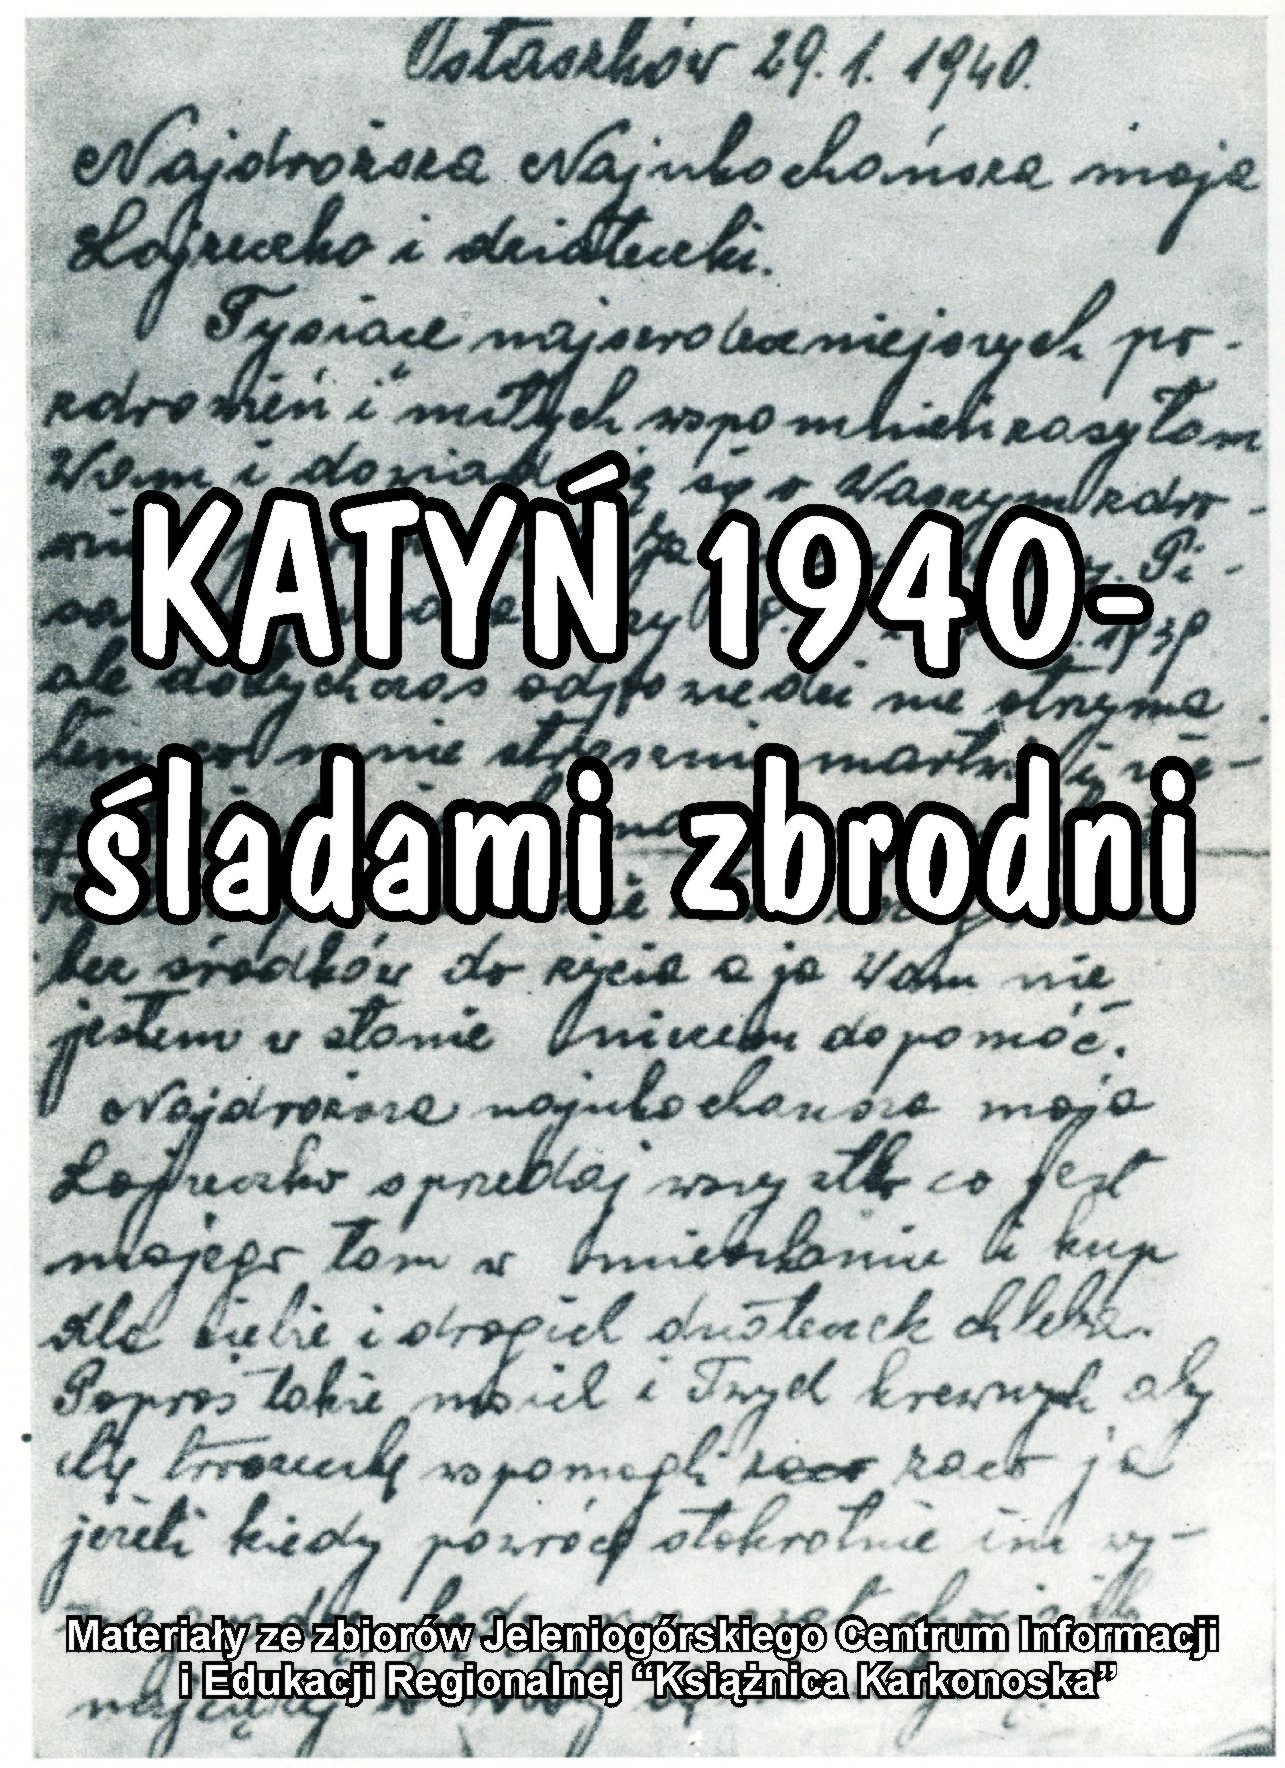 Ostaszków 29.1.1940.
Najdroższa Najukochańsza moja
Lojzeczko i dziateczki.
Tysiące najserdeczniejszych po-
zdrowień i miłych wspomnień zasyłam
Wam i dowiaduję się o Waszym zdro-
KATYŃ 1940-
Pi-
1939
ale dotychczas odpowiedzi nie otrzyma
łem co mnie strasznie martwi i nie-
śladami zbrodni
bez środków do życia a ja Wam nie
jestem w stanie niczem dopomóc.
Najdroższa najukochansza moja
Lojzeczko sprzedaj wszystko co jest
mojego tam w mieszkaniu i kup
dla siebie i drogich dziateczek chleba.
Poproś także moich i Twych krewnych aby
Cię troszeczkę wspomogli zaco ja
jeżeli kiedy powrócę stokrotnie im wy-
Materiały ze zbiorów Jeleniogórskiego Centrum Informacji
i Edukacji Regionalnej “Książnica Karkonoska”